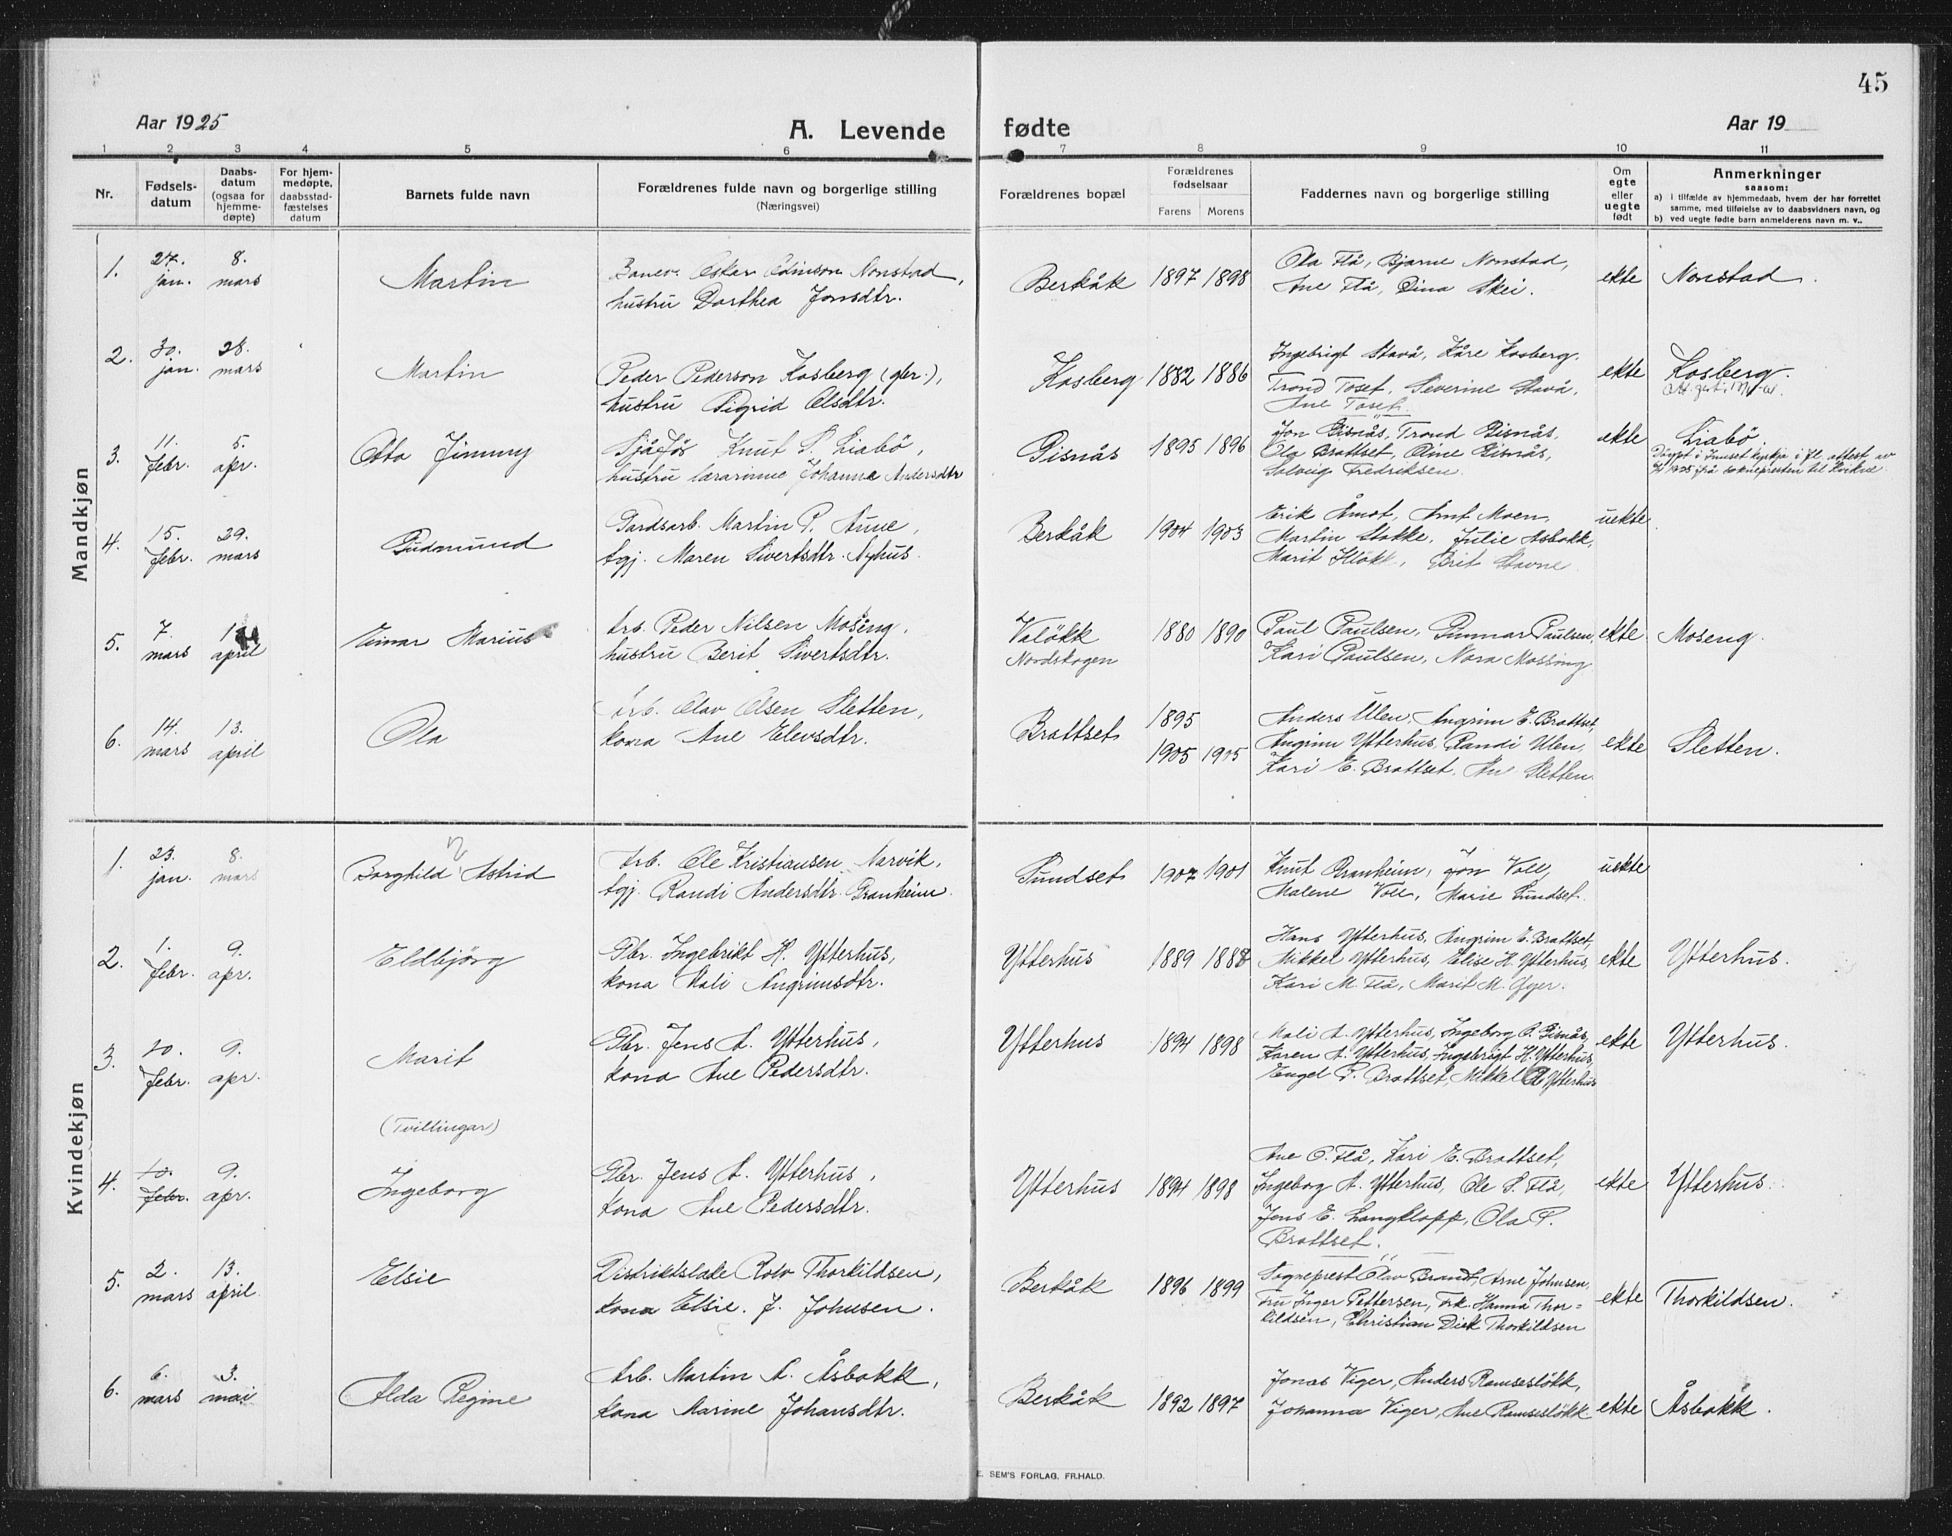 45
Aar 1925
A. Levende fødte
Aar 19
1 2 3 4 5 6 7 8 9 10 11
Nr.
Fødsels-
datum
Daabs-
datum
(ogsaa for
hjemme-
døpte)
For hjem-
medøpte,
daabsstad-
fæstelses
datum
Barnets fulde navn
Forældrenes fulde navn og borgerlige stilling
(Næringsvei)
Forældrenes bopæl
Forældrenes
fødselsaar
Farens Morens
Faddernes navn og borgerlige stilling
Om
egte
eller
uegte
født
Anmerkninger
saasom:
a) i tilfælde av hjemmedaab, hvem der har forrettet
samme, med tilføielse av to daabsvidners navn, og
b) ved uegte fødte barn anmelderens navn m. v..
Mandkjøn
1.
27.
jan.
8.
mars
Martin
Oskar Edinson Nonstad,
hustru Dorthea Jonsdtr.
Berkåk
1897 1898
Ola Flå, Bjarne Nonstad,
Ane Flå, Dina Skei.
ekte
Nonstad.
2.
30.
jan.
28.
mars
Martin
Peder Pederson Kosberg (gbr.),
hustru Sigrid Olsdtr.
Kosberg
1882 1886
Ingebrigt Stavå, Kåre Kosberg.
Trond Toset, Severine Stavå,
Ane Toset.
ekte
Kosberg.
3.
11.
febr.
5.
apr.
Otto Jimmy
Knut S. Liabö,
hustru lærarinne Johanna Andersdtr
Gisnås
1895 1896
Jon Gisnås, Trond Gisnås,
Ola Brattset, Oline Gisnås,
Solveig Fredriksen.
ekte
Liabö.
Døypt i Innset kyrkja i fl. attest av
1925 frå soknepresten til Kvikne.
4.
15.
febr.
29.
mars
Gudmund
Gardsarb. Martin P. Aune,
tgj. Maren Sivertsdtr. Nyhus.
Berkåk
1904 1903
Erik Åmot, Arnt Moen,
Martin Stokke, Julie Åsbakk,
Marit Kløkk, Brit Stavne
uekte
5.
7.
mars
april
Einar Marius
Arb. Peder Nilsen Moseng,
hustru Berit Sivertsdtr.
Valökk
Nordskogen
1880 1890
Paul Paulsen, Gunnar Paulsen,
Kari Paulsen, Nora Mossing
ekte
Moseng.
6.
14.
mars
13.
april
Ola
Arb. Olav Olsen Sletten,
kona Ane Elevsdtr.
Brattset
1895
1905 1905
Anders Ulen, Angrim E. Brattset,
Angrim Ytterhus, Randi Ulen,
Kari E. Brattset. An Sletten.
ekte
Sletten.
Kvindekjøn
1.
23.
jan.
8.
mars
Borghild Astrid
Arb. Ole Kristiansen Narvik,
tgj. Randi Andersdtr Granheim.
Sundset
1907 1901
Knut Granheim, Jon Voll,
Malene Voll, Marie Sundset.
uekte
2.
1.
febr.
9.
apr.
Eldbjörg
Gbr. Ingebrikt H. Ytterhus,
kona Mali Angrimsdtr.
Ytterhus
1889 1888
Hans Ytterhus, Angrim E. Brattset,
Mikkel Ytterhus, Elise H. Ytterhus,
Kari M. Flå, Marit M. Gjer.
ekte
Ytterhus.
3.
10.
febr.
9.
apr.
Marit
Gbr. Jens A. Ytterhus,
kona Ane Pedersdtr.
Ytterhus
1894 1898
Mali A. Ytterhus, Ingeborg O. Gisnås,
Karen A. Ytterhus, Ingebrigt H. Ytterhus,
Engel P. Brattset, Mikkel Ytterhus
ekte
Ytterhus.
(Tvillingar)
4.
10.
febr.
9.
apr.
Ingeborg
Gbr. Jens A. Ytterhus,
kona Ane Pedersdtr.
Ytterhus
1894 1898
Ane O. Flå, Kari E. Brattset,
Ingeborg A. Ytterhus, Ole S. Flå,
Jens E. Langklopp, Ola P.
Brattset.
ekte
Ytterhus.
5.
2.
mars
13.
april
Elsie
Distriktslæke Rolv Thorkildsen,
kona Elsie. J. Johnsen.
Berkåk
1896 1899
Sogneprest Olav Brandt, Arne Johnsen,
Fru Inger Pettersen, Frk. Hanna Thor=
kildsen, Christian Dick Thorkildsen
ekte
Thorkildsen.
6.
6.
mars
3.
mai
Alda Regine
Arb. Martin A. Åsbakk,
kona Marine Johansdtr.
Berkåk
1892 1897
Jonas Viger, Anders Ramslökk,
Johanna Viger, Ane Ramslökk
ekte
Åsbakk.
E. SEM'S FORLAG, FR.HALD.